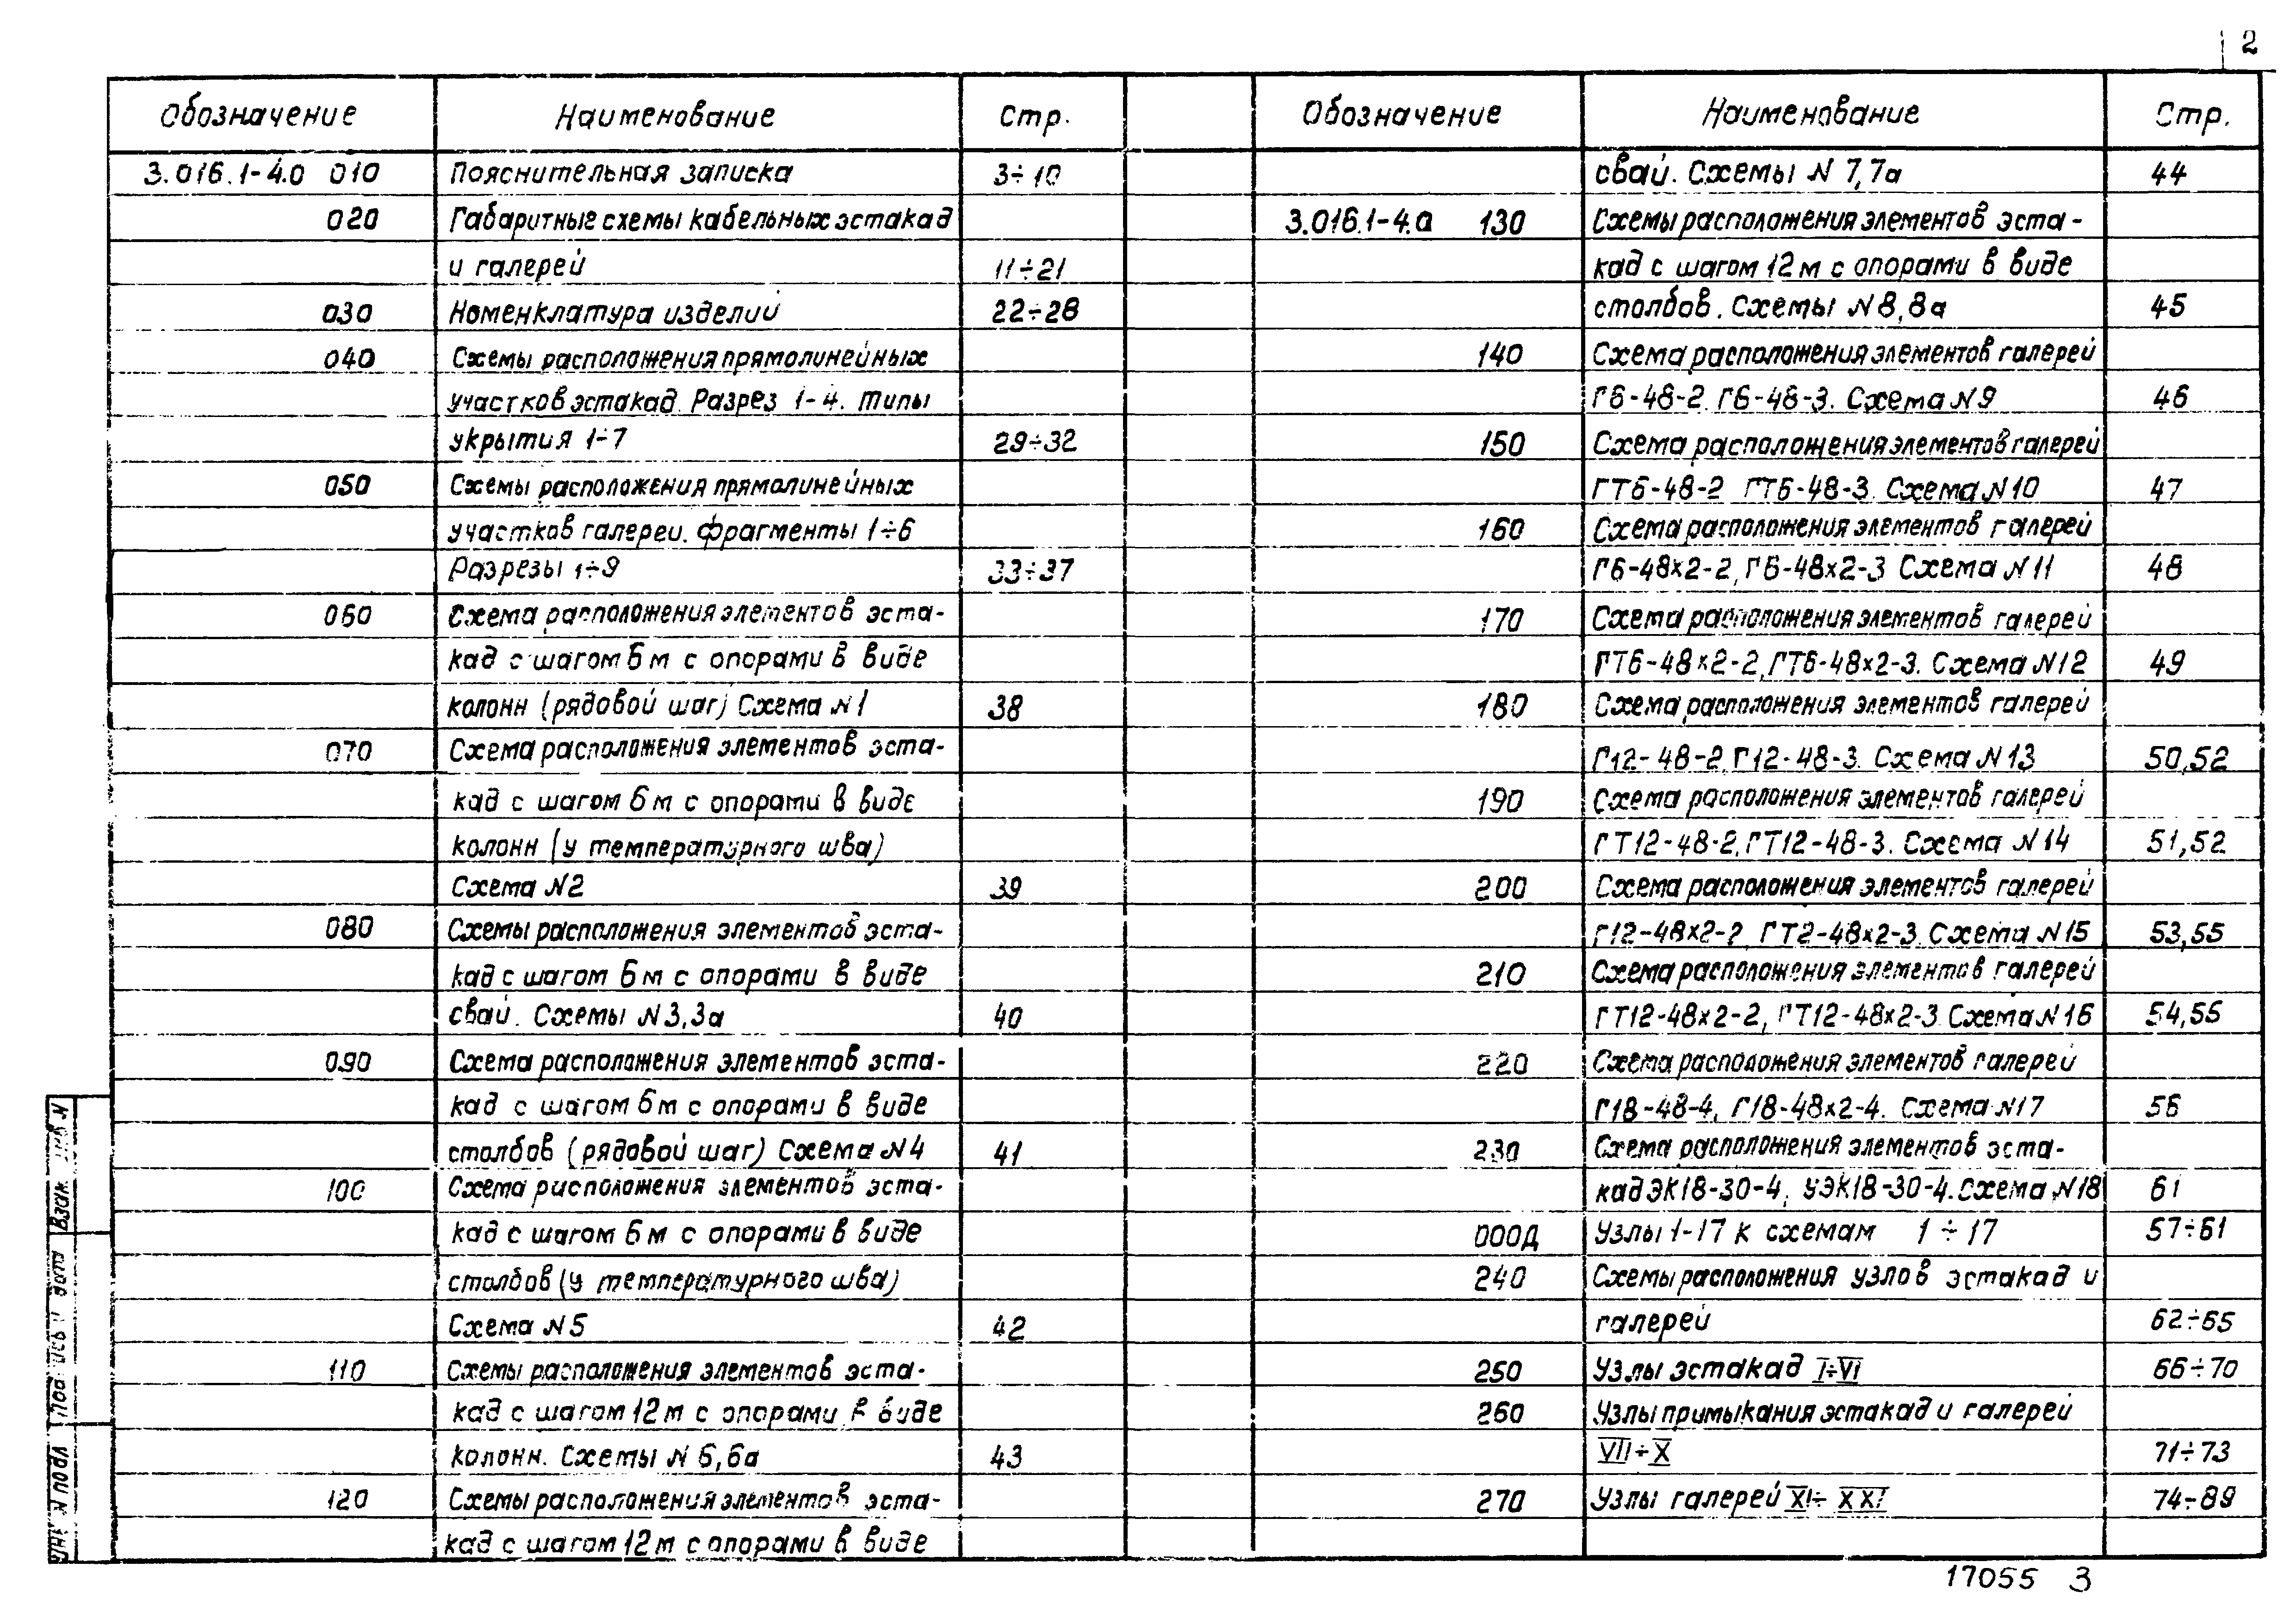 2
Обозначение Наименование Стр.
3.016.1-4.0 010 Пояснительная записка 3÷10
020 Габаритные схемы кабельных эстакад
и галерей 11÷21
030 Номенклатура изделий 22÷28
040 Схемы расположения прямолинейных
участков эстакад. Разрез 1-4. Типы
укрытия 1÷7 29÷32
050 Схемы расположения прямолинейных
участков галереи. Фрагменты 1÷6
Разрезы 1÷9 33÷37
060 Схема расположения элементов эста-
кад с шагом 6 м с опорами в виде
колонн (рядовой шаг) Схема N1 38
070 Схема расположения элементов эста-
кад с шагом 6 м с опорами в виде
колонн (у температурного шва)
Схема N2 39
080 Схемы расположения элементов эста-
кад с шагом 6 м с опорами в виде
свай. Схемы N3,3а 40
090 Схема расположения элементов эста-
кад с шагом 6 м с опорами в виде
столбов (рядовой шаг) Схема N4 41
100 Схема расположения элементов эста-
кад с шагом 6 м с опорами в виде
столбов (у температурного шва)
Схема N5 42
110 Схемы расположения элементов эста-
кад с шагом 12 м с опорами в виде
колонн. Схемы N 6,6а 43
120 Схемы расположения элементов эста-
кад с шагом 12 м с опорами в виде
Обозначение Наименование Стр.
свай. Схемы N 7,7а 44
3.016.1-4.0 130 Схемы расположения элементов эста-
кад с шагом 12 м с опорами в виде
столбов. Схемы N8,8а 45
140 Схема расположения элементов галерей
Г6-48-2. Г6-48-3. Схема N9 46
150 Схема расположения элементов галерей
ГТ6-48-2 ГТ6-48-3. Схема N10 47
160 Схема расположения элементов галерей
Г6-48х2-2, Г6-48х2-3 Схема N11 48
170 Схема расположения элементов галерей
ГТ6-48х2-2, ГТ6-48х2-3. Схема N12 49
180 Схема расположения элементов галерей
Г12-48-2, Г12-48-3. Схема N13 50,52
190 Схема расположения элементов галерей
ГТ12-48-2, ГТ12-48-3. Схема N14 51,52
200 Схема расположения элементов галерей
Г12-48х2-2, ГТ2-48х2-3. Схема N15 53,55
210 Схема расположения элементов галерей
ГТ12-48х2-2, ГТ12-48х2-3 Схема N16 54,55
220 Схема расположения элементов галерей
Г18-48-4, Г18-48х2-4. Схема N17 56
230 Схема расположения элементов эста-
кад ЭК18-30-4, УЭК18-30-4. Схема N18 61
000Д Узлы 1-17 к схемам 1÷17 57÷61
240 Схемы расположения узлов эстакад и
галерей 62÷65
250 Узлы эстакад I÷VI 66÷70
260 Узлы примыкания эстакад и галерей
VII÷X 71÷73
270 Узлы галерей XI÷XXI 74-89
Взак. инв N
Подпись и дата
инв N подл
17055 3